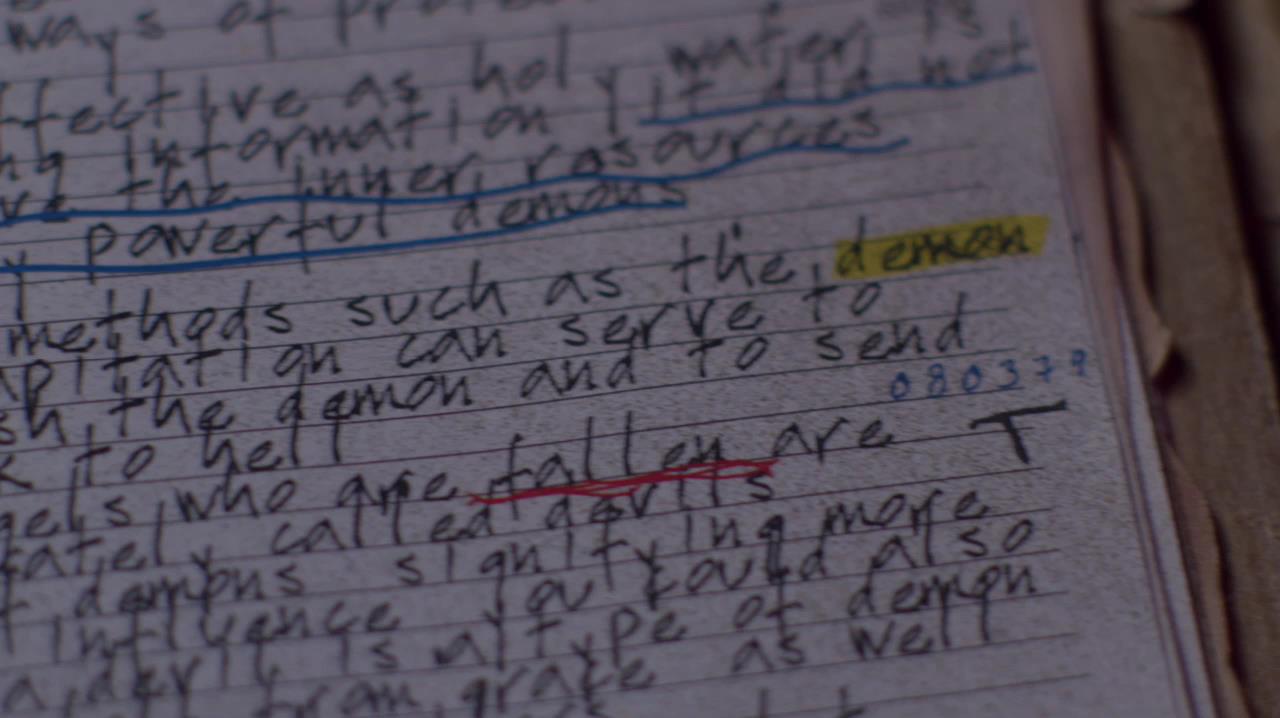 ways of
ffective as holy water
ng information it did not
ve the inner resources
y powerful demons
methods such as the demon
apitation can serve to
sh the demon and to send
080379
k to hell
gels who are fallen are T
ately called devils
f demons signifying more
influence You could also
a devil is a type of demon
from grace as well